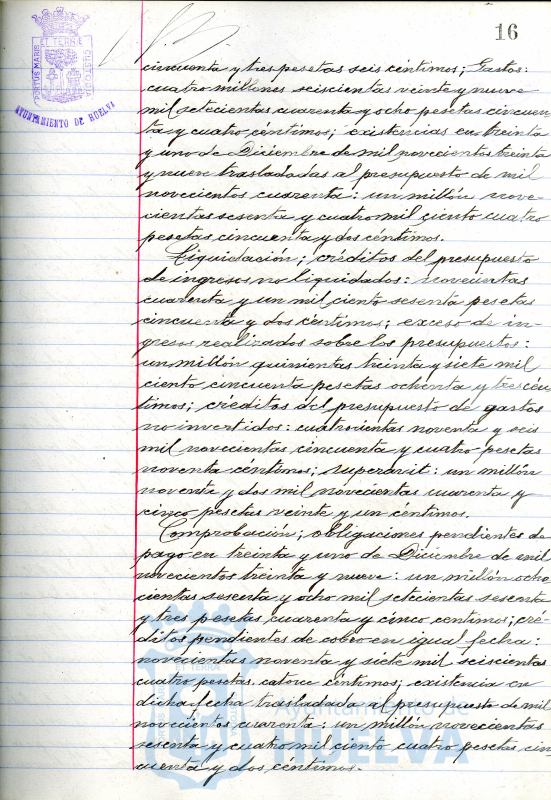 16
PORTUS MARIS ET TERRÆ CUSTODIA
AYUNTAMIENTO DE HUELVA
cincuenta y tres pesetas seis céntimos; Gastos:
cuatro millones seiscientas veinte y nueve
mil setecientas cuarenta y ocho pesetas cincuen
ta y cuatro céntimos; existencias en treinta
y uno de Diciembre de mil novecientos treinta
y nueve trasladadas al presupuesto de mil
novecientos cuarenta: un millón nove-
cientas sesenta y cuatro mil ciento cuatro
pesetas cincuenta y dos céntimos.
Liquidación; créditos del presupuesto
de ingresos no liquidados: novecientas
cuarenta y un mil ciento sesenta pesetas
cincuenta y dos céntimos; exceso de in-
gresos realizados sobre los presupuestos:
un millón quinientas treinta y siete mil
ciento cincuenta pesetas ochenta y tres cén
timos; créditos del presupuesto de gastos
no invertidos: cuatrocientas noventa y seis
mil novecientas cincuenta y cuatro pesetas
noventa céntimos; superavit: un millón
noventa y dos mil novecientas cuarenta y
cinco pesetas veinte y un céntimos.
Comprobación; obligaciones pendientes de
pago en treinta y uno de Diciembre de mil
novecientos treinta y nueve: un millón ocho
cientas sesenta y ocho mil setecientas sesenta
y tres pesetas cuarenta y cinco centimos; cré-
ditos pendientes de cobro en igual fecha:
novecientas noventa y siete mil seiscientas
cuatro pesetas catorce céntimos; existencia en
dicha fecha trasladada al presupuesto de mil
novecientos cuarenta: un millón novecientas
sesenta y cuatro mil ciento cuatro pesetas cin
cuenta y dos céntimos.-
Ayuntamiento de
HUELVA